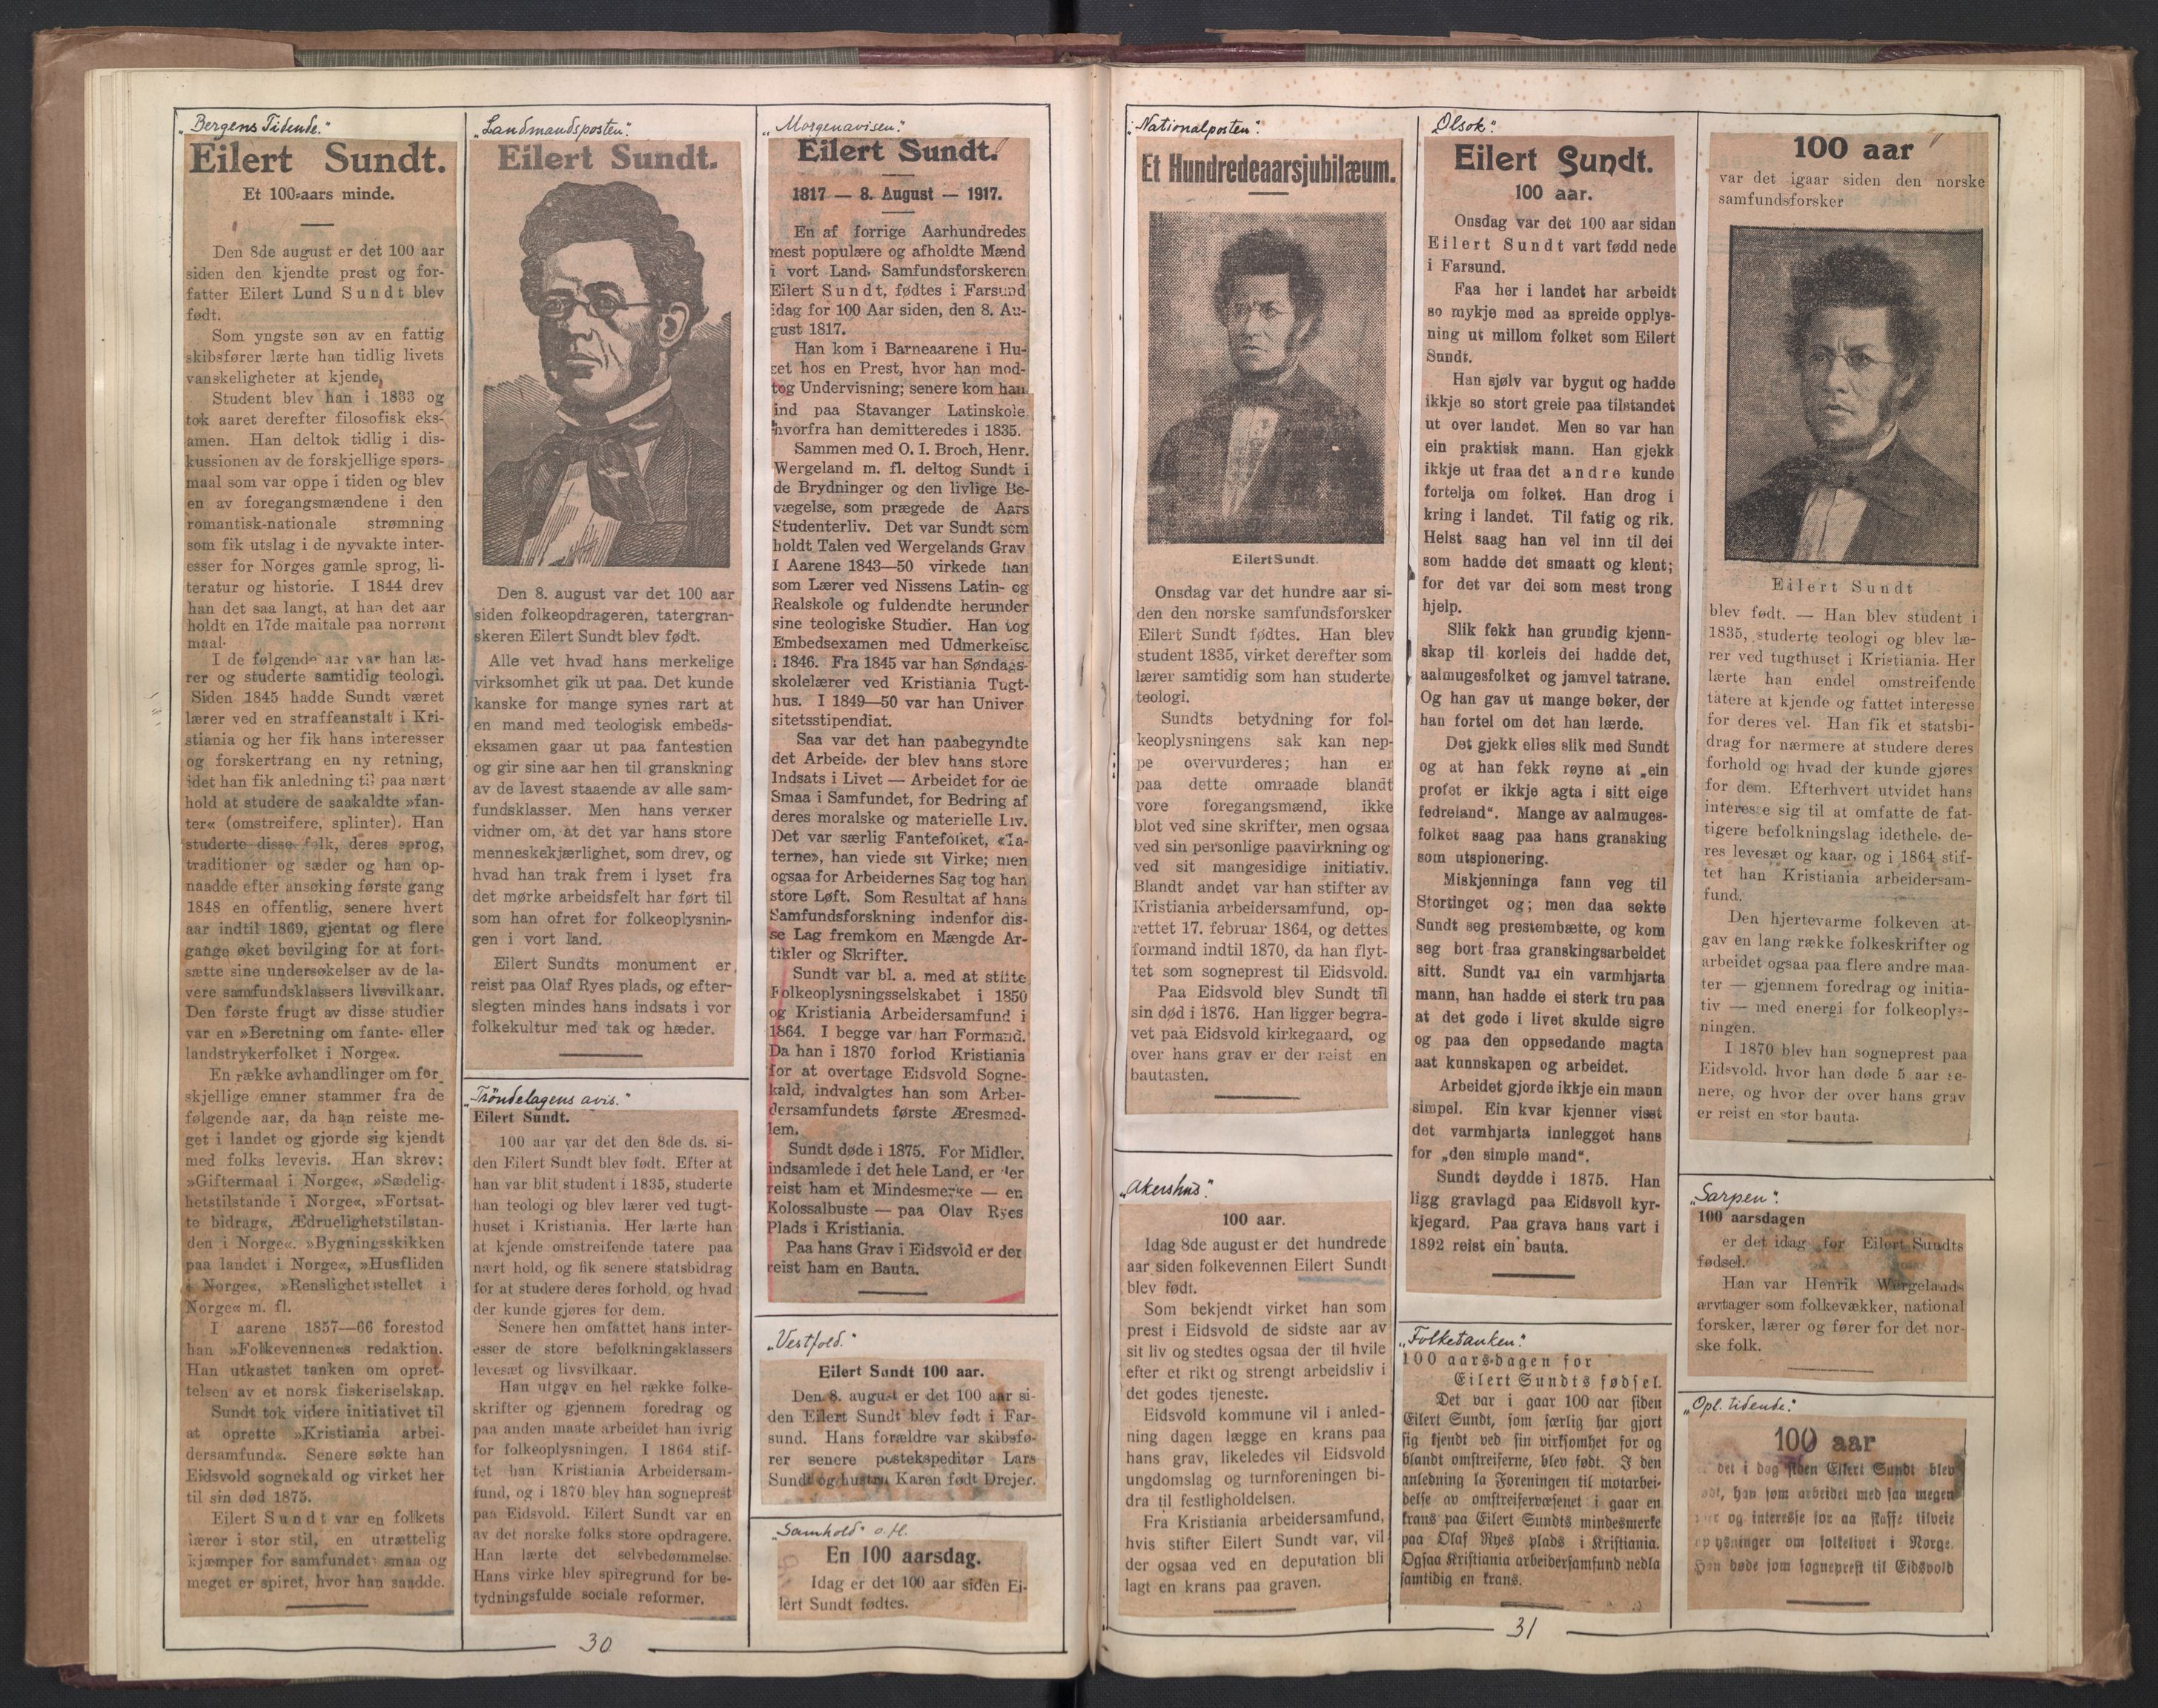 „Bergens Tidende."
Eilert Sundt.
Et 100-aars minde.
Den 8de august er det 100 aar
siden den kjendte prest og for-
fatter Eilert Lund Sundt blev
født.
Som yngste søn av en fattig
skibsfører lærte han tidlig livets
vanskeligheter at kjende.
Student blev han i 1833 og
tok aaret derefter filosofisk eks-
amen. Han deltok tidlig i dis-
kussionen av de forskjellige spørs-
maal som var oppe i tiden og blev
en av foregangsmændene i den
romantisk-nationale strømning
som fik utslag i de nyvakte inter-
esser for Norges gamle sprog, li-
teratur og historie. I 1844 drev
han det saa langt, at han det aar
holdt en 17de maitale paa norrønt
maal.
I de følgende aar var han læ-
rer og studerte samtidig teologi.
Siden 1845 hadde Sundt været
lærer ved en straffeanstalt i Kri-
stiania og her fik hans interesser
og forskertrang en ny retning,
idet han fik anledning til paa nært
hold at studere de saakaldte »fan-
ter« (omstreifere, splinter). Han
studerte disse folk, deres sprog,
traditioner og sæder og han op-
naadde efter ansøking første gang
1848 en offentlig, senere hvert
aar indtil 1869, gjentat og flere
gange øket bevilging for at fort-
sætte sine undersøkelser av de la-
vere samfundsklassers livsvilkaar.
Den første frugt av disse studier
var en »Beretning om fante- eller
landstrykerfolket i Norge«.
En række avhandlinger om for
skjellige emner stammer fra de
følgende aar, da han reiste me-
get i landet og gjorde sig kjendt
med folks levevis. Han skrev:
»Giftermaal i Norge«, »Sædelig-
hetstilstande i Norge«, »Fortsat-
te bidrag«, Ædruelighetstilstan-
den i Norge«. »Bygningsskikken
paa landet i Norge«, »Husfliden
i Norge«, »Renslighetsstellet i
Norge« m. fl.
I aarene 1857—66 forestod
han »Folkevennen«s redaktion.
Han utkastet tanken om opret-
telsen av et norsk fiskeriselskap.
Sundt tok videre initiativet til
at oprette »Kristiania arbei-
dersamfund«. Senere søkte han
Eidsvold sognekald og virket her
til sin død 1875.
Eilert Sundt var en folkets
lærer i stor stil, en utrættelig
kjæmper for samfundets smaa og
meget er spiret, hvor han saadde.
„Landmandsposten".
Eilert Sundt.
Den 8. august var det 100 aar
siden folkeopdrageren, tatergran-
skeren Eilert Sundt blev født.
Alle vet hvad hans merkelige
virksomhet gik ut paa. Det kunde
kanske for mange synes rart at
en mand med teologisk embeds-
eksamen gaar ut paa fantestien
og gir sine aar hen til granskning
av de lavest staaende av alle sam-
fundsklasser. Men hans verker
vidner om, at det var hans store
menneskekjærlighet, som drev, og
hvad han trak frem i lyset fra
det mørke arbeidsfelt har ført til
som han ofret for folkeoplysnin-
gen i vort land.
Eilert Sundts monument er
reist paa Olaf Ryes plads, og efter-
slegten mindes hans indsats i vor
folkekultur med tak og hæder.
„Tröndelagens avis."
Eilert Sundt.
100 aar var det den 8de ds. si-
den Eilert Sundt blev født. Efter at
han var blit student i 1835, studerte
han teologi og blev lærer ved tugt-
huset i Kristiania. Her lærte han
at kjende omstreifende tatere paa
nært hold, og fik senere statsbidrag
for at studere deres forhold, og hvad
der kunde gjøres for dem.
Senere hen omfattet hans inter-
esser de store befolkningsklassers
levesæt og livsvilkaar.
Han utgav en hel række folke-
skrifter og gjennem foredrag og
paa anden maate arbeidet han ivrig
for folkeoplysningen. I 1864 stif-
tet han Kristiania Arbeidersam-
fund, og i 1870 blev han sogneprest
paa Eidsvold. Eilert Sundt var en
av det norske folks store opdragere.
Han lærte det selvbedømmelse.
Hans virke blev spiregrund for be-
tydningsfulde sociale reformer.
„Morgenavisen".
Eilert Sundt.
1817 — 8. August — 1917.
En af forrige Aarhundredes
mest populære og afholdte Mænd
i vort Land. Samfundsforskeren
Eilert Sundt, fødtes i Farsund
idag for 100 Aar siden, den 8. Au-
gust 1817.
Han kom i Barneaarene i Hu-
set hos en Prest, hvor han mod-
tog Undervisning; senere kom han
ind paa Stavanger Latinskole
hvorfra han demitteredes i 1835.
Sammen med O. I. Broch, Henr.
Wergeland m. fl. deltog Sundt i
de Brydninger og den livlige Be-
vægelse, som prægede de Aars
Studenterliv. Det var Sundt som
holdt Talen ved Wergelands Grav
I Aarene 1843—50 virkede han
som Lærer ved Nissens Latin- og
Realskole og fuldendte herunder
sine teologiske Studier. Han tog
Embedsexamen med Udmerkelse
i 1846. Fra 1845 var han Søndags-
skolelærer ved Kristiania Tugt-
hus. I 1849—50 var han Univer
sitetsstipendiat.
Saa var det han paabegyndte
det Arbeide, der blev hans store
Indsats i Livet — Arbeidet for de
Smaa i Samfundet, for Bedring af
deres moralske og materielle Liv.
Det var særlig Fantefolket, «Ta-
terne», han viede sit Virke; men
ogsaa for Arbeidernes Sag tog han
store Løft. Som Resultat af hans
Samfundsforskning indenfor dis-
se Lag fremkom en Mængde Ar-
tikler og Skrifter.
Sundt var bl. a. med at stifte
Folkeoplysningsselskabet i 1850
og Kristiania Arbeidersamfund i
1864. I begge var han Formand.
Da han i 1870 forlod Kristiania
for at overtage Eidsvold Sogne-
kald, indvalgtes han som Arbei-
dersamfundets første Æresmed-
lem.
Sundt døde i 1875. For Midler,
indsamlede i det hele Land, er der
reist ham et Mindesmerke — en
Kolossalbuste — paa Olav Ryes
Plads i Kristiania.
Paa hans Grav i Eidsvold er der
reist ham en Bauta.
„Vestfold."
Eilert Sundt 100 aar.
Den 8. august er det 100 aar si-
den Eilert Sundt blev født i Far-
sund. Hans forældre var skibsfø-
rer senere postekspeditør Lars
Sundt og hustru Karen født Drejer.
„Samhold" o. fl.
En 100 aarsdag.
Idag er det 100 aar siden Ei-
lert Sundt fødtes.
30
„Nationalposten".
Et Hundredeaarsjubilæum.
Eilert Sundt.
Onsdag var det hundre aar si-
den den norske samfundsforsker
Eilert Sundt fødtes. Han blev
student 1835, virket derefter som
lærer samtidig som han studerte
teologi.
Sundts betydning for fol-
keoplysningens sak kan nep-
pe overvurderes; han er
paa dette omraade blandt
vore foregangsmænd, ikke
blot ved sine skrifter, men ogsaa
ved sin personlige paavirkning og
ved sit mangesidige initiativ.
Blandt andet var han stifter av
Kristiania arbeidersamfund, op-
rettet 17. februar 1864, og dettes
formand indtil 1870, da han flyt-
tet som sogneprest til Eidsvold.
Paa Eidsvold blev Sundt til
sin død i 1876. Han ligger begra-
vet paa Eidsvold kirkegaard, og
over hans grav er der reist en
bautasten.
„Akershus".
100 aar.
Idag 8de august er det hundrede
aar siden folkevennen Eilert Sundt
blev født.
Som bekjendt virket han som
prest i Eidsvold de sidste aar av
sit liv og stedtes ogsaa der til hvile
efter et rikt og strengt arbeidsliv i
det godes tjeneste.
Eidsvold kommune vil i anled-
ning dagen lægge en krans paa
hans grav, likeledes vil Eidsvold
ungdomslag og turnforeningen bi-
dra til festligholdelsen.
Fra Kristiania arbeidersamfund,
hvis stifter Eilert Sundt var, vil
der ogsaa ved en deputation bli
lagt en krans paa graven.
Olsok".
Eilert Sundt.
100 aar.
Onsdag var det 100 aar sidan
Eilert Sundt vart fødd nede
i Farsund.
Faa her i landet har arbeidt
so mykje med aa spreide opplys-
ning ut millom folket som Eilert
Sundt.
Han sjølv var bygut og hadde
ikkje so stort greie paa tilstandet
ut over landet. Men so var han
ein praktisk mann. Han gjekk
ikkje ut fraa det andre kunde
fortelja om folket. Han drog i
kring i landet. Til fatig og rik.
Helst saag han vel inn til dei
som hadde det smaatt og klent;
for det var dei som mest trong
hjelp.
Slik fekk han grundig kjenn-
skap til korleis dei hadde det,
aalmugesfolket og jamvel tatrane.
Og han gav ut mange bøker, der
han fortel om det han lærde.
Det gjekk elles slik med Sundt
og at han fekk røyne at „ein
profet er ikkje agta i sitt eige
fedreland". Mange av aalmuges-
folket saag paa hans gransking
som utspionering.
Miskjenninga fann veg til
Stortinget og; men daa søkte
Sundt seg prestembætte, og kom
seg bort fraa granskingsarbeidet
sitt. Sundt var ein varmhjarta
mann, han hadde ei sterk tru paa
at det gode i livet skulde sigre
og paa den oppsedande magta
aat kunnskapen og arbeidet.
Arbeidet gjorde ikkje ein mann
simpel. Ein kvar kjenner visst
det varmhjarta innlegget hans
for „den simple mand".
Sundt døydde i 1875. Han
ligg gravlagd paa Eidsvoll kyr-
kjegard. Paa grava hans vart i
1892 reist ein bauta.
„Folketanken".
100 aarsdagen for
Eilert Sundts fødsel.
Det var i gaar 100 aar siden
Eilert Sundt, som særlig har gjort
sig kjendt ved sin virksomhet for og
blandt omstreiferne, blev født. I den
anledning la Foreningen til motarbei-
delse av omstreifervæsenet i gaar en
krans paa Eilert Sundts mindesmerke
paa Olaf Ryes plads i Kristiania.
Ogsaa Kristiania arbeidersamfund nedla
samtidig en krans.
100 aar
var det igaar siden den norske
samfundsforsker
Eilert Sundt
blev født. — Han blev student i
1835, studerte teologi og blev læ-
rer ved tugthuset i Kristiania. Her
lærte han endel omstreifende
tatere at kjende og fattet interesse
for deres vel. Han fik et statsbi-
drag for nærmere at studere deres
forhold og hvad der kunde gjøres
for dem. Efterhvert utvidet hans
interesse sig til at omfatte de fat-
tigere befolkningslag idethele, de-
res levesæt og kaar, og i 1864 stif-
tet han Kristiania arbeidersam-
fund.
Den hjertevarme folkeven ut-
gav en lang række folkeskrifter og
arbeidet ogsaa paa flere andre maa-
ter — gjennem foredrag og initia-
tiv — med energi for folkeoplys-
ningen.
I 1870 blev han sogneprest paa
Eidsvold, hvor han døde 5 aar se-
nere, og hvor der over hans grav
er reist en stor bauta.
„Sarpen".
100 aarsdagen
er det idag for Eilert Sundts
fødsel.
Han var Henrik Wergelands
arvtager som folkevækker, national
forsker, lærer og fører for det nor-
ske folk.
„Opl. tidende".
100 aar
det i dag siden Eilert Sundt blev
han som arbeidet med saa megen
og interesse for aa skaffe tilveie
om folkelivet i Norge.
Han døde som sogneprest til Eidsvold
31